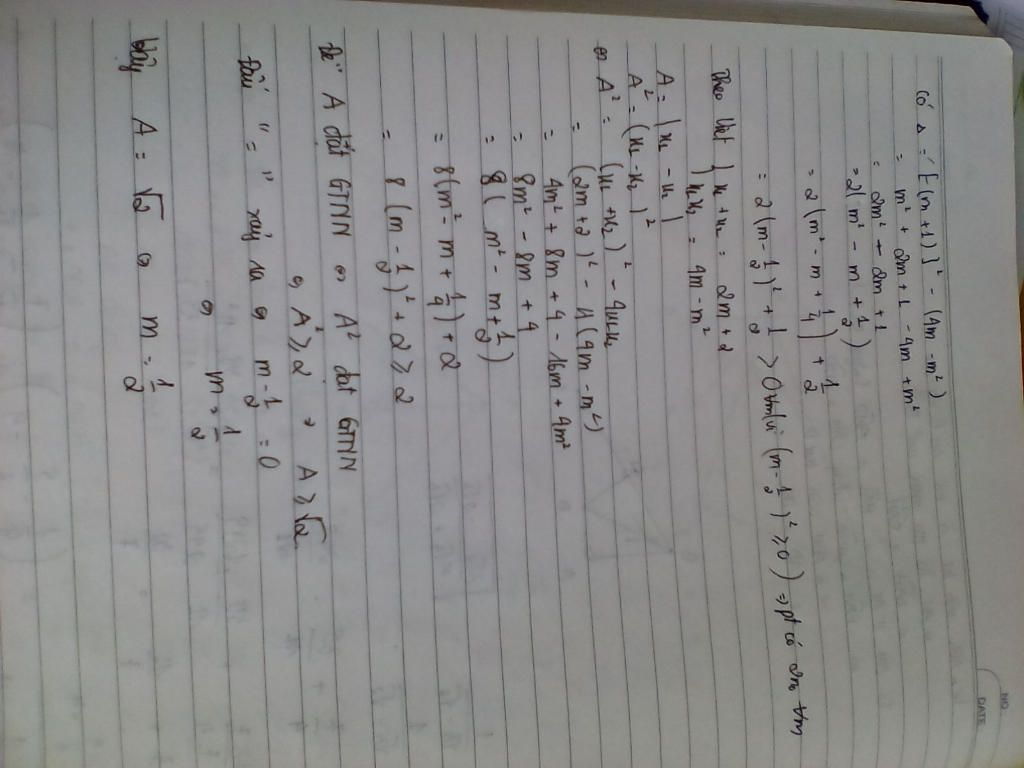 NO.
DATE
Có Δ' = [-(m+1)]² - (4m - m²)
= m² + 2m + 1 - 4m + m²
= 2m² - 2m + 1
= 2(m² - m + 1/2)
= 2(m² - m + 1/4) + 1/2
= 2(m - 1/2)² + 1/2 > 0 ∀m (vì (m - 1/2)² ≥ 0) ⇒ pt có 2no ∀m
Theo Viét { x₁ + x₂ = 2m + 2
x₁x₂ = 4m - m²
A = |x₁ - x₂|
A² = (x₁ - x₂)²
⇔ A² = (x₁ + x₂)² - 4x₁x₂
= (2m + 2)² - 4(4m - m²)
= 4m² + 8m + 4 - 16m + 4m²
= 8m² - 8m + 4
= 8(m² - m + 1/2)
= 8(m² - m + 1/4) + 2
= 8(m - 1/2)² + 2 ≥ 2
Để A đạt GTNN ⇔ A² đạt GTNN
⇔ A² ≥ 2 ⇒ A ≥ √2
Dấu "=" xảy ra ⇔ m - 1/2 = 0
⇔ m = 1/2
Vậy A = √2 ⇔ m = 1/2